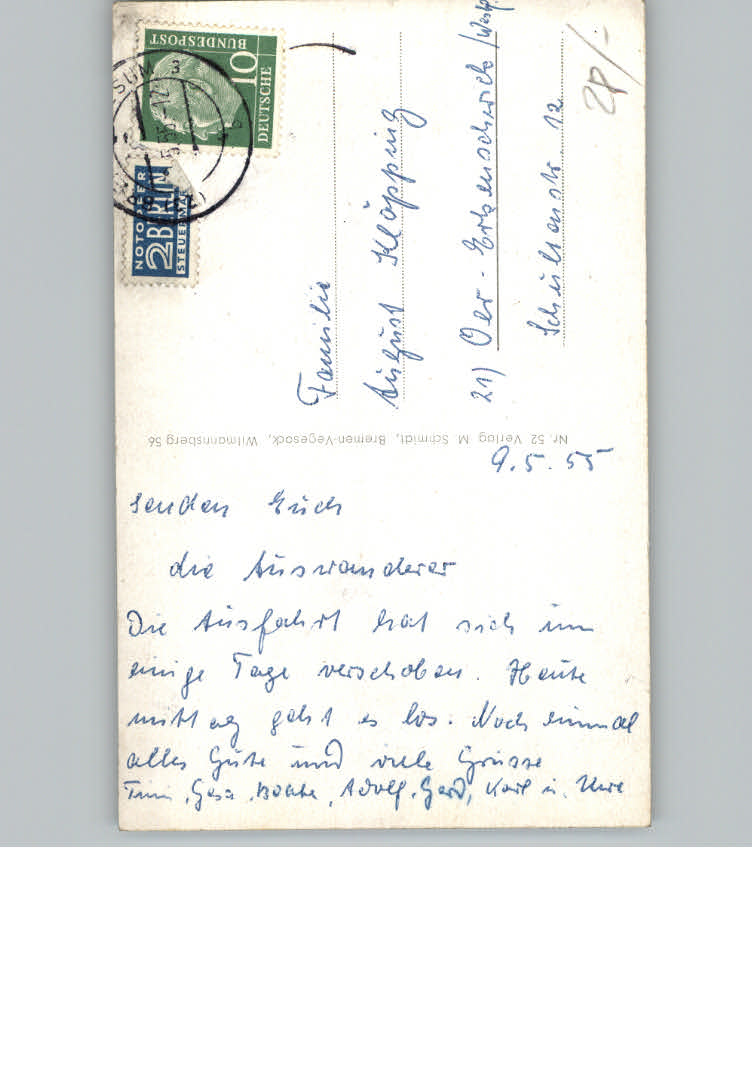 DEUTSCHE
BUNDESPOST
10
NOTOPFER
2 BERLIN
STEUERMARKE
28/-
Familie
August Klöpping
21) Oer-Erkenschwick /Westf.
Schultenstr. 12
Nr. 52 Verlag M. Schmidt, Bremen-Vegesack, Wilmannsberg 56
9.5.55
senden Euch
die Auswanderer
Die Ausfahrt hat sich um
einige Tage verschoben. Heute
mittag geht es los. Noch einmal
alles Gute und viele Grüsse
Timm, Gesa, Beate, Adolf, Gerd, Karl u. Uwe